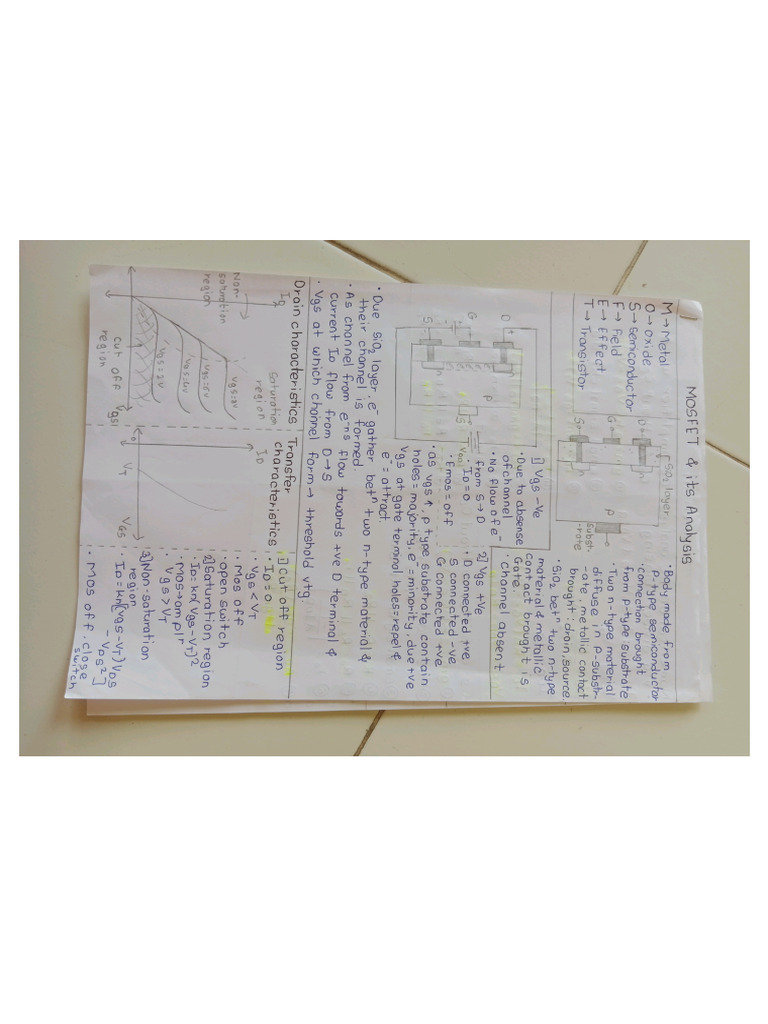 MOSFET & its Analysis
M → Metal
O → Oxide
S → Semiconductor
F → Field
E → Effect
T → Transistor
SiO2 layer
D
G
S
P
subst-
rate
• Body made from
p-type semiconductor
• connection brought
from p-type: substrate
• Two n-type material
diffuse in p-substr-
-ate, metallic contact
brought: drain, source.
• SiO2 betn two n-type
material & metallic
contact brought is
Gate.
• channel absent
D
G
S
P
S
VDD
1] Vgs -Ve
• Due to absense
of channel
• No flow of e-
from S → D
• ID = 0
• Emos = off
2] Vgs +Ve
D connected +ve
S connected -ve
G connected +ve
• as vgs ↑, p type substrate contain
holes = majority, e- = minority, due +ve
vgs at gate terminal holes = repel &
e- = attract
• Due SiO2 layer; e- gather betn two n-type material &
their channel is formed.
• As channel from e-ns flow towards +ve D terminal &
current ID flow from D → S
• Vgs at which channel form → threshold vtg.
Drain characteristics
ID
Non-
saturation
region
saturation
region
Vgs=8V
Vgs=6V
Vgs=4V
Vgs=2V
cut off
region
Transfer
characteristics
ID
0
VT
VGS
1] Cut off region
• ID = 0
• Vgs < VT
• Mos off
• open switch
2] Saturation region
• ID = kn(Vgs-VT)2
• Mos → amplr
• Vgs > VT
3] Non-saturation
region
• ID = kn[(Vgs-VT)VDS
- VDS2]
• Mos off. close
switch